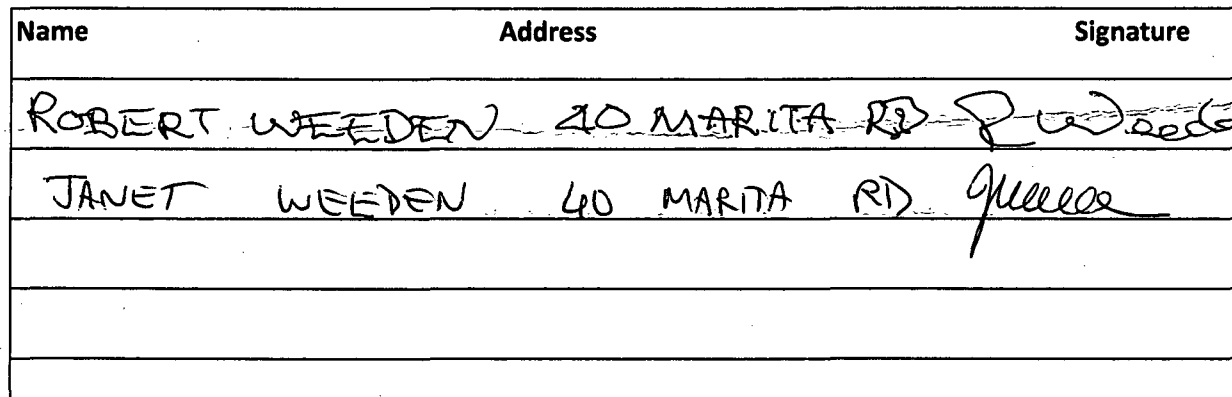 Name Address Signature
ROBERT WEEDEN 40 MARITA RD R Weede
JANET WEEDEN 40 MARITA RD